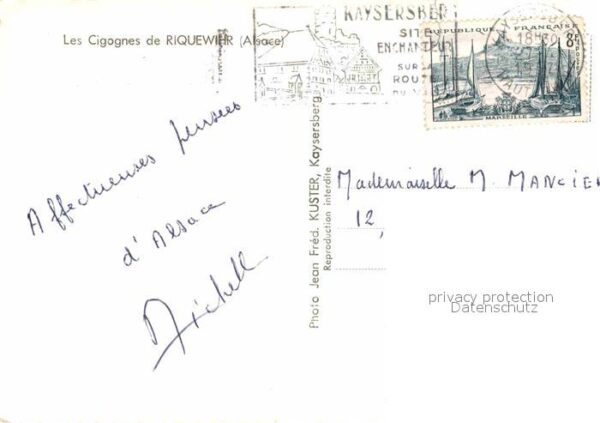 Les Cigognes de RIQUEWIHR (Alsace)
KAYSERSBERG
SITE
ENCHANTEUR
SUR LA
ROUTE
DU
18H30
REPUBLIQUE FRANÇAISE
8F
POSTES
MARSEILLE
Affectueuses pensées
d'Alsace
Michell
Photo Jean Fréd. KUSTER, Kaysersberg
Reproduction interdite
Mademoiselle M. MANCIE
12,
privacy protection
Datenschutz